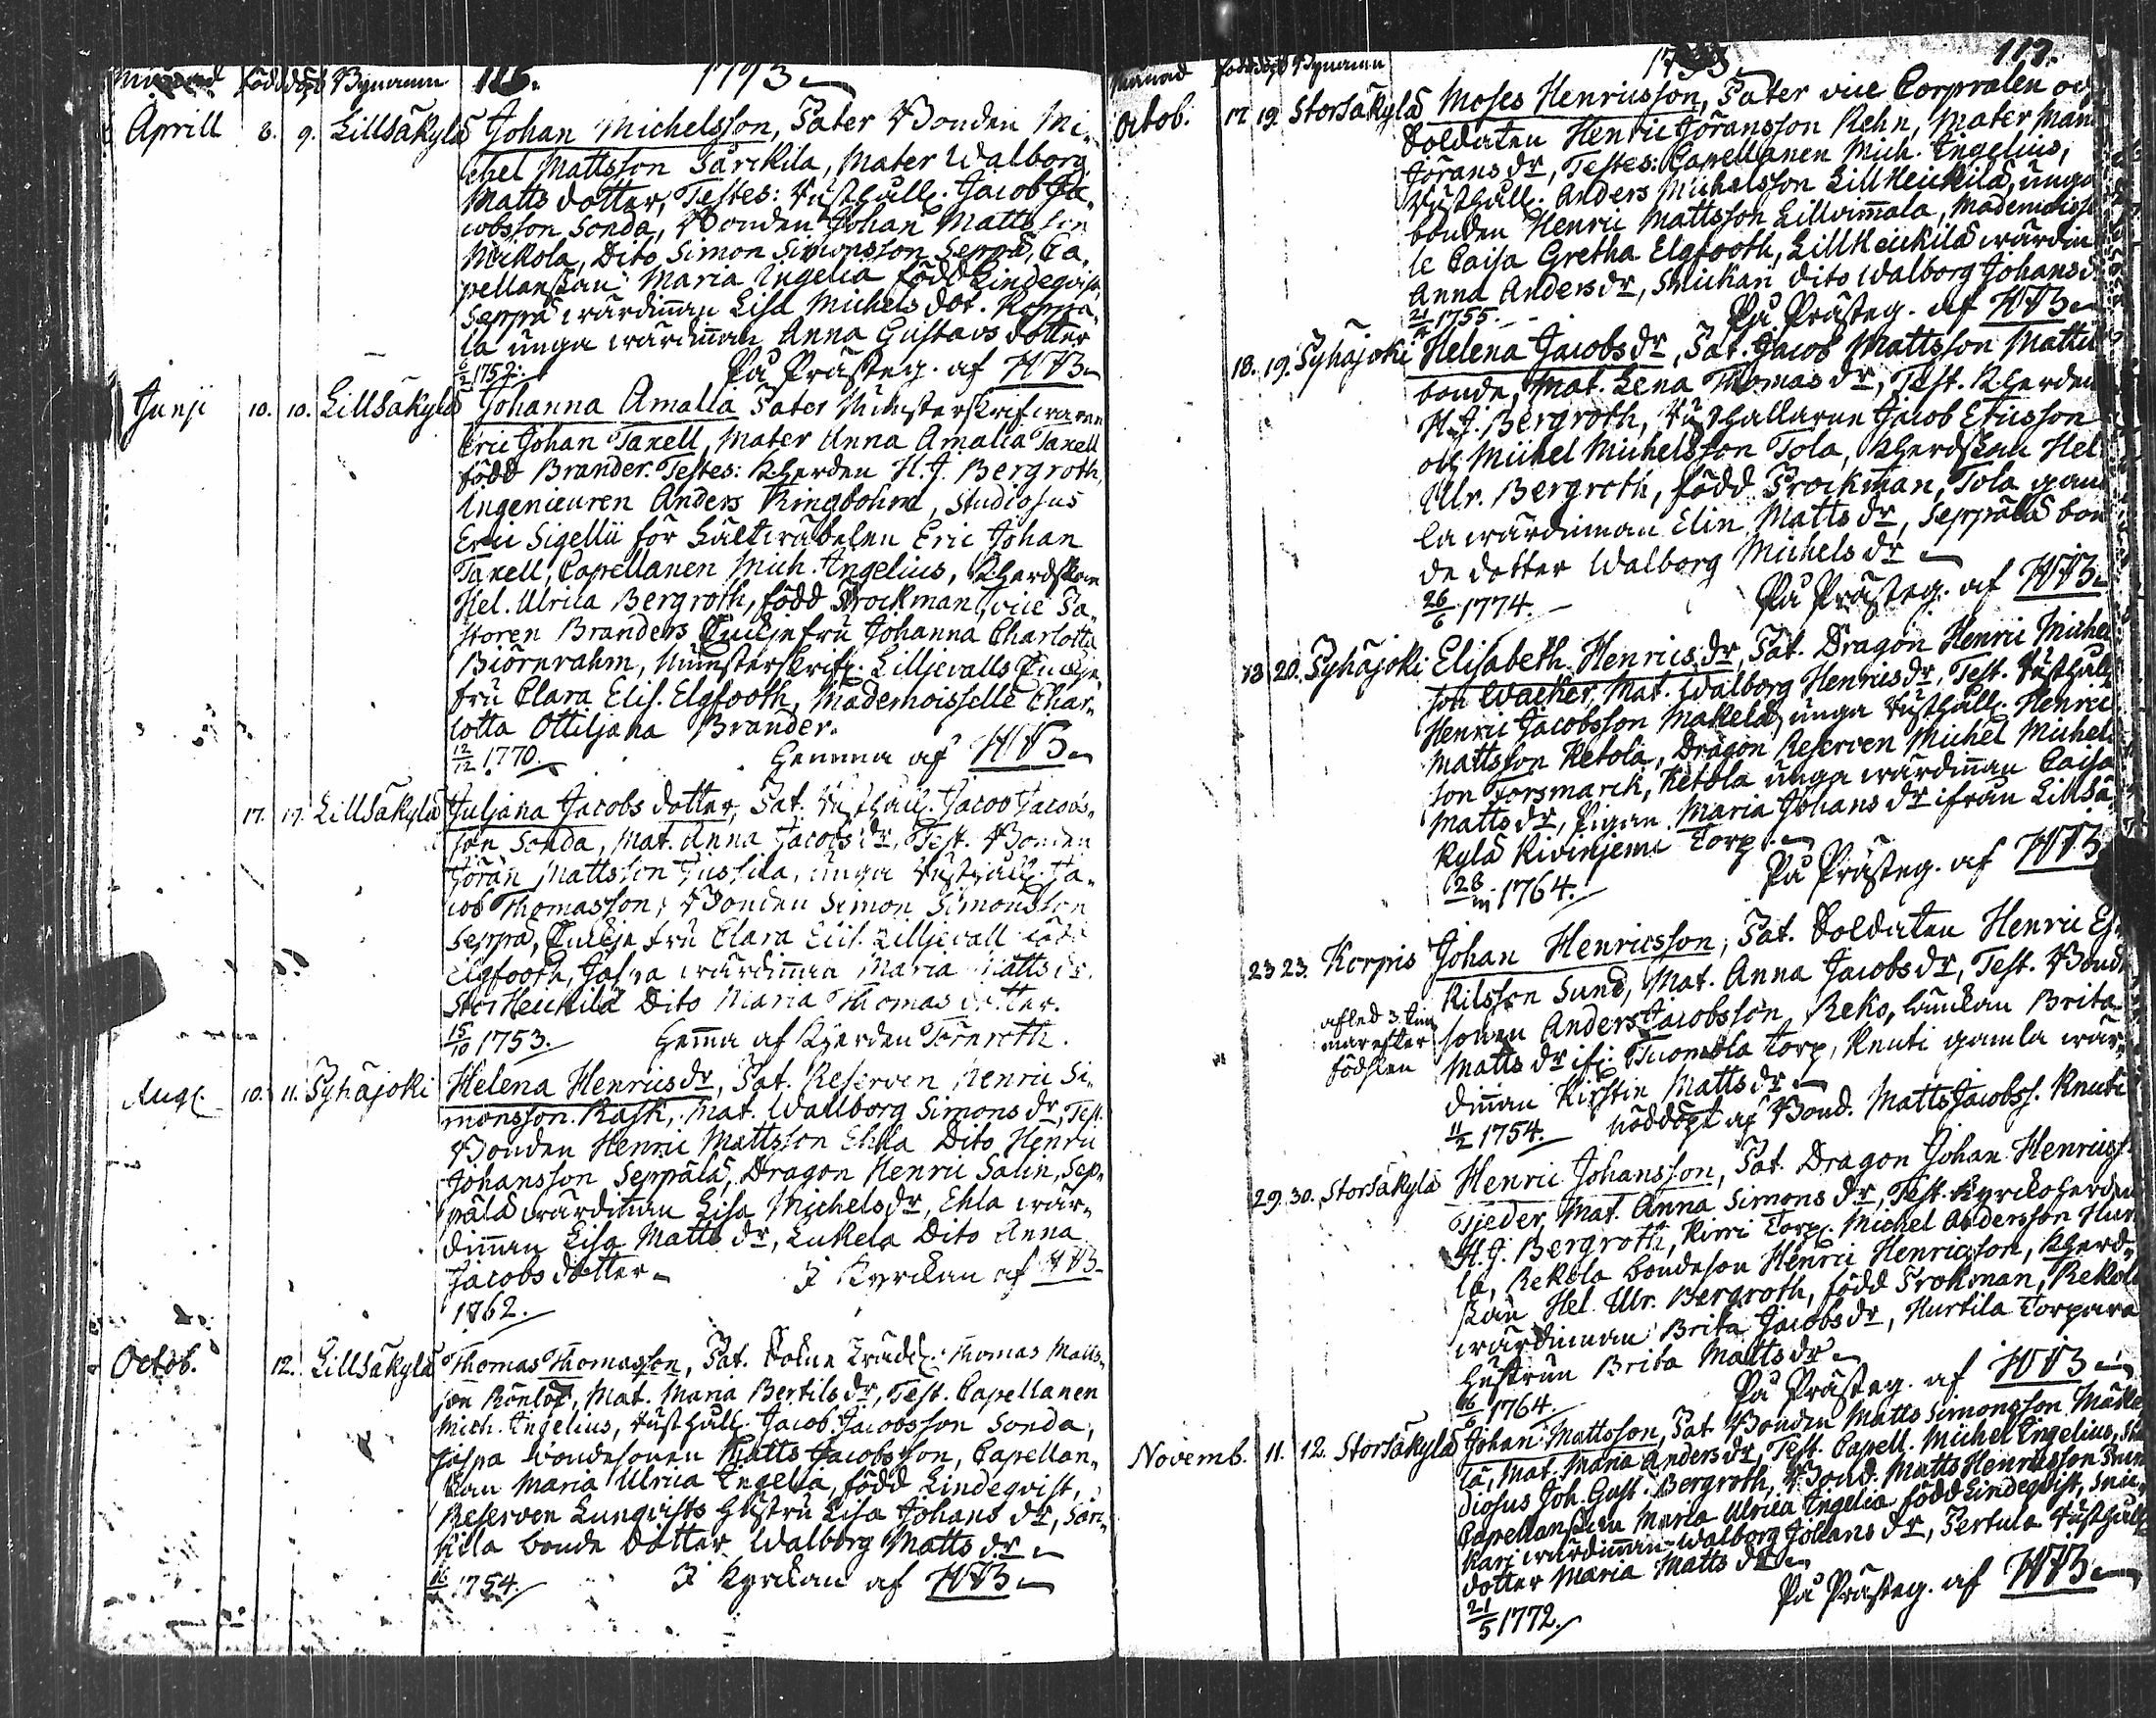 Månad född döpt Bynamn 116. 1793
Aprill 8. 9. Lillsäkylä Johan Michelsson, Pater Bonden Mi-
chel Mattsson Särckilä, Mater Walborg
Matts dotter, Testes: Rusthåll. Jacob Ja-
cobsson Sonda, Bonden Johan Mattsson
Mickola, Dito Simon Simonsson Seppä, Ca-
pellanskan Maria Ingelia född Lindeqvist,
Seppä wärdinnan Lisa Michels dot.
la unga wärdinnan Anna Gustavs dotter
6/2 1752. På Prästeg. af HJB
Junji 10. 10. Lillsäkylä Johanna Amalia Pater Munsterskrifwaren
Eric Johan Taxell, Mater Anna Amalia Taxell
född Brander. Testes: Kherden H. J. Bergroth,
Ingenieuren Anders Ringbohm, Studiosus
Eric Sigellii för Fältwäbelen Eric Johan
Taxell, Capellanen Mich. Ingelius, Kherdskan
Hel. Ulrica Bergroth, född Prockman, vice Pa-
storen Branders Enckjefru Johanna Charlotta
Biörnrahm, Munsterskrif. Lilljevalls Enckje-
fru Clara Elis. Elgfooth, Mademoisselle Char-
lotta Ottiljana Brander.
12/12 1770. Hemma af HJB
17. 17. Lillsäkylä Juljana Jacobs dotter, Pat. Rusthåll. Jacob Jacobs-
son Sonda, Mat. Anna Jacobs dr, Test. Bonden
Jöran Mattsson Jussila, unga Rusthåll. Ja-
cob Thomasson, Bonden Simon Simonsson
Seppä, Enckje fru Clara Elis. Lilljevall född
Elgfooth, Jaspa wärdinnan Maria Matts dr.
Stor Heickilä Dito Maria Thomas dotter.
15/10 1753. Hemma af Kherden Törnroth.
Aug. 10. 11. Pyhäjoki Helena Henrics dr, Pat. Reserven Henric Si-
monsson Rask, Mat. Wallborg Simons dr, Test.
Bonden Henric Mattsson Ehlla Dito Henric
Johansson Seppälä, Dragon Henric Salin, Sep-
pälä wärdinan Lisa Michels dr, Ehla wär-
dinnan Lisa Matts dr, Luckela Dito Anna
Jacobs dotter. I Kyrckan af HJB
1762.
Octob. 12. Lillsäkylä Thomas Thomasson, Pat. Thomas Matts-
son Rönlöf, Mat. Maria Bertils dr, Test. Capellanen
Mich. Ingelius, Rusthåll. Jacob Jacobsson Sonda,
Jaspa bondesonen Matts Jacobsson, Capellan-
skan Maria Ulrica Ingelia, född Lindeqvist,
Reserven Lunqvists hustru Lisa Johans dr, Särc-
kila bonde dotter Walborg Matts dr
1754. I Kyrckan af HJB
Månad född döpt Bynamn 117.
Octob. 17. 19. Storsäkylä Moses Henricsson, Pater vice Corpralen och
Soldaten Henric Jöransson Rehn, Mater
Jörans dr, Testes: Capellanen Mich. Ingelius,
Rusthåll. Anders Michelsson Lill Heickilä, unga
bonden Henric Mattsson Lillvimmala,
le Caisa Gretha Elgfooth, Lill Heickilä wärdin
Anna Anders dr, Snickari dito Walborg Johans d
21/4 1755. På Prästeg. af HJB
18. 19. Pyhäjoki Helena Jacobs dr, Pat. Jacob Mattsson
bonde, Mat. Lena Thomas dr, Test. Kherden
H. J. Bergroth, Rusthållaren Jacob Ericsson
och Michel Michelsson Tola, Kherdskan Hel.
Ulr. Bergroth, född Prockman, Tola gam
la wärdinnan Elin Matts dr, Seppälä bon
de dotter Walborg Michels dr
26/6 1774. På Prästeg. af HJB
18. 20. Pyhäjoki Elisabeth Henrics dr, Pat. Dragon Henric Michels
son Wacker, Mat. Walborg Henrics dr, Test. Rusthåll.
Henric Jacobsson Makelä, unga Rusthåll. Henric
Mattsson Ketola, Dragon Reserven Michel Michels
son Forsmarck, Ketola unga wärdinnan Caisa
Matts dr, Pigan Maria Johans dr ifrån Lillsä-
kylä Kivinjemi Torp.
1764. På Prästeg. af HJB
23. 23. Korpris Johan Henricsson, Pat. Soldaten Henric Es-
kilsson Sund, Mat. Anna Jacobs dr, Test. Bonde
afled 3. tim- sonen Anders Jacobsson Reko, Brita
mar efter Matts dr if: Tuomola torp, Knuti gamla wär-
födslen dinnan Kirstin Matts dr
11/2 1754. Nöddöpt af Bond. Matts Jacobss. Knuti
29. 30. Storsäkylä Henric Johansson, Pat. Dragon Johan Henricss.
Tjeder, Mat. Anna Simons dr, Test. Kyrckoherden
H. J. Bergroth, Kirri Torp. Michel Andersson Hur
la, Rekola bondeson Henric Henricsson, Kherd-
skan Hel. Ulr. Bergroth, född Prokman, Rekola
wärdinnan Brita Jacobs dr, Hurtila Torpare
hustrun Brita Matts dr
16/6 1764. På Prästeg. af HJB
Novemb. 11. 12. Storsäkylä Johan Mattsson, Pat. Bonden Matts Simonsson Mäke
lä, Mat. Maria Anders dr, Test. Capell. Michel Ingelius, Stu
diosus Joh. Gust. Bergroth, Bond. Matts Henricsson
Capellanskan Maria Ulrica Ingelia född Lindeqvist, Snic-
kari wärdinnan Walborg Johans dr, Pertula Rusthåll.
dotter Maria Matts dr
21/5 1772. På Prästeg. af HJB